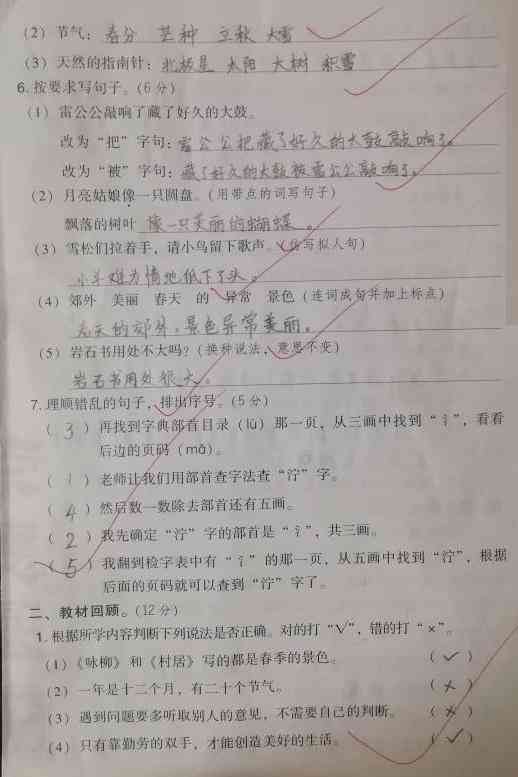 (2) 节气：春分 芒种 立秋 大雪
(3) 天然的指南针：北极星 太阳 大树 积雪
6.按要求写句子。(6分)
(1) 雷公公敲响了藏了好久的大鼓。
改为“把”字句：雷公公把藏了好久的大鼓敲响了。
改为“被”字句：藏了好久的大鼓被雷公公敲响了。
(2) 月亮姑娘像一只圆盘。(用带点的词写句子)
飘落的树叶像一只美丽的蝴蝶。
(3) 雪松们拉着手，请小鸟留下歌声。(仿写拟人句)
小草难为情地低下了头。
(4) 郊外 美丽 春天 的 异常 景色 (连词成句并加上标点)
春天的郊外，景色异常美丽。
(5) 岩石书用处不大吗？(换种说法，意思不变)
岩石书用处很大。
7.理顺错乱的句子，排出序号。(5分)
(3) 再找到字典部首目录(lù)那一页，从三画中找到“氵”，看看
后边的页码(mǎ)。
(1) 老师让我们用部首查字法查“泞”字。
(4) 然后数一数除去部首还有五画。
(2) 我先确定“泞”字的部首是“氵”，共三画。
(5) 我翻到检字表中有“氵”的那一页，从五画中找到“泞”，根据
后面的页码就可以查到“泞”字了。
二、教材回顾。(12分)
1.根据所学内容判断下列说法是否正确。对的打“√”，错的打“×”。
(1)《咏柳》和《村居》写的都是春季的景色。 (√)
(2) 一年是十二个月，有二十个节气。 (×)
(3) 遇到问题要多听取别人的意见，不需要自己的判断。 (×)
(4) 只有靠勤劳的双手，才能创造美好的生活。 (√)